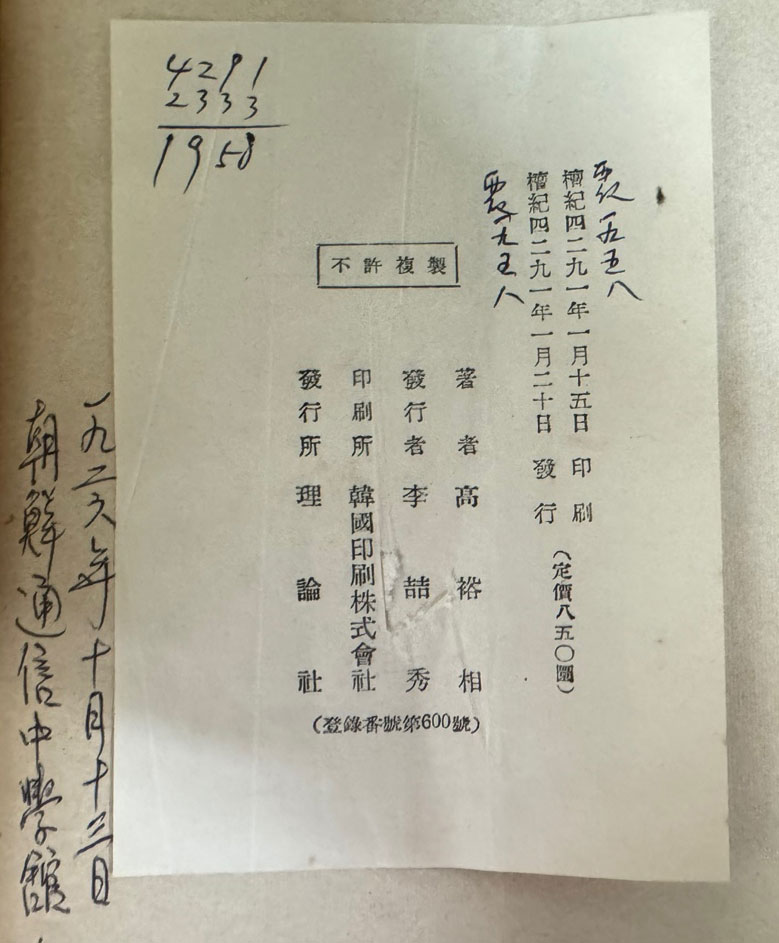 4291
2333
1958
西紀一九五八
檀紀四二九一年一月十五日 印刷
檀紀四二九一年一月二十日 發行
西紀一九五八
(定價八五〇圜)
不許複製
著者 高裕相
發行者 李喆秀
印刷所 韓國印刷株式會社
發行所 理論社
(登錄番號第600號)
一九二六年十月十三日
朝鮮通信中學館